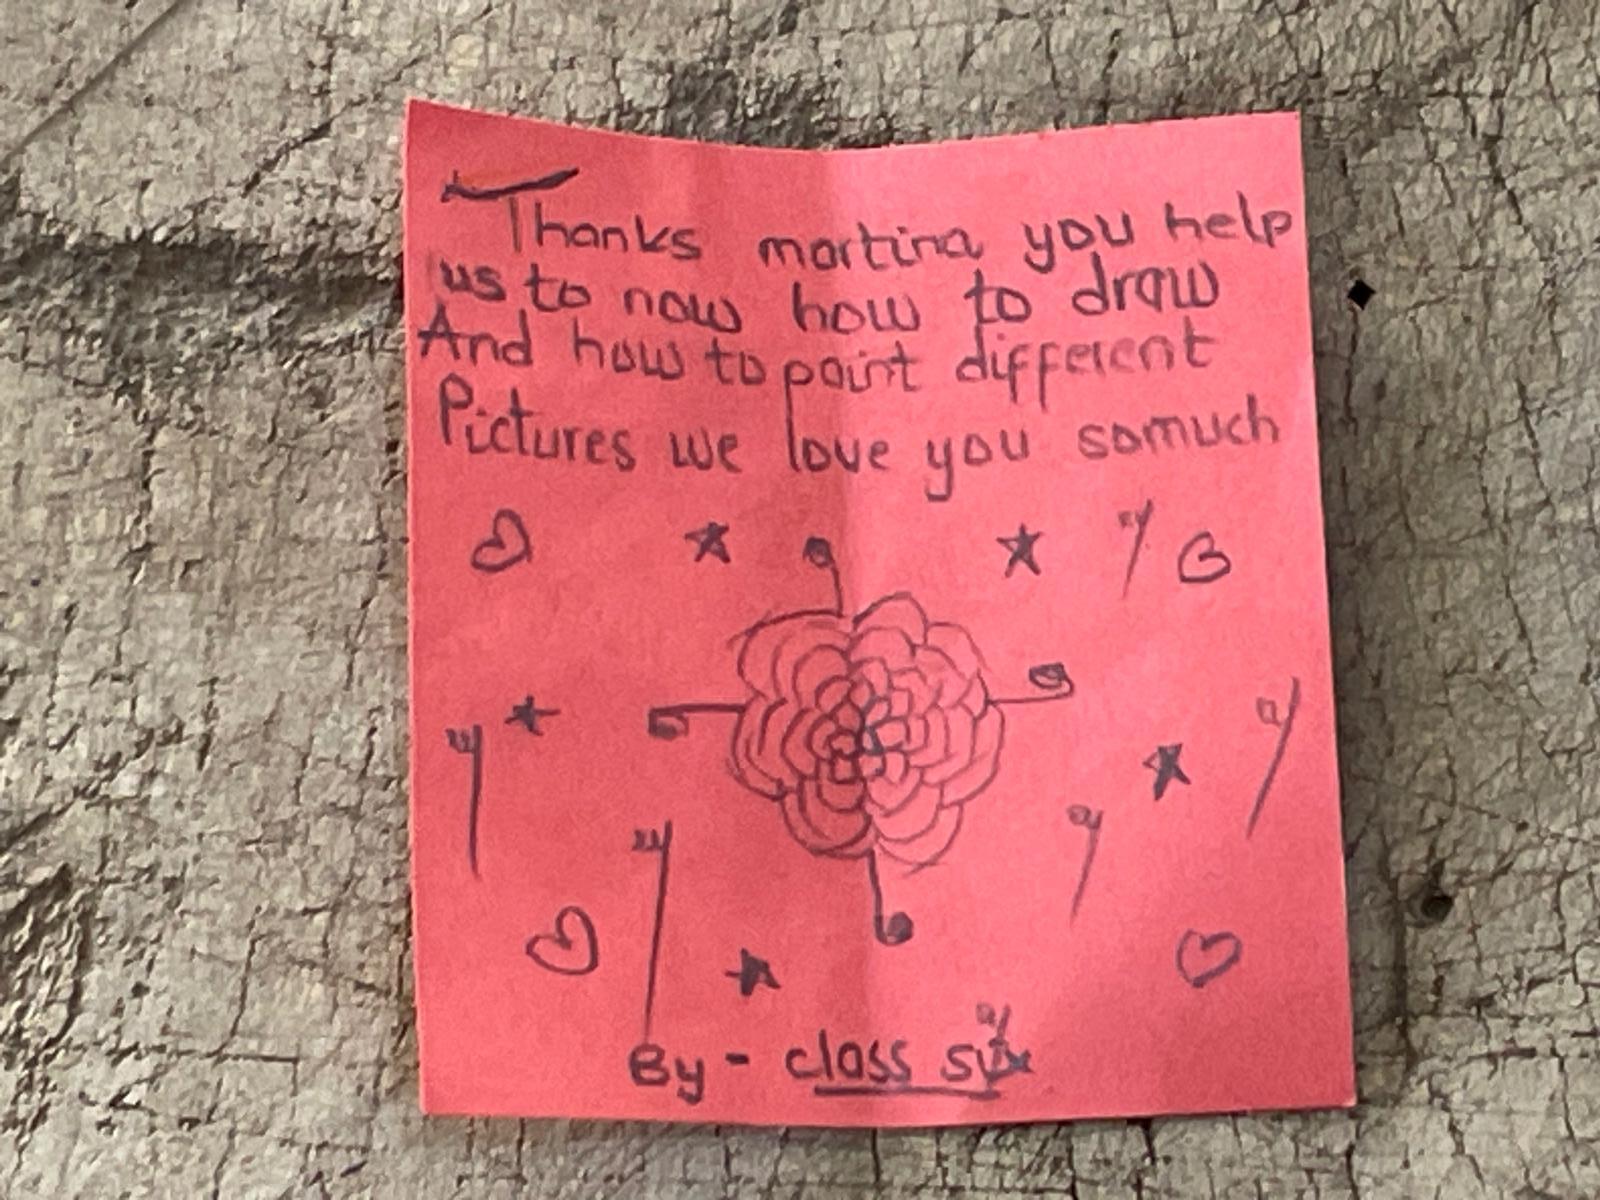 Thanks martina you help
us to now how to draw
And how to paint different
Pictures we love you somuch
By - class six